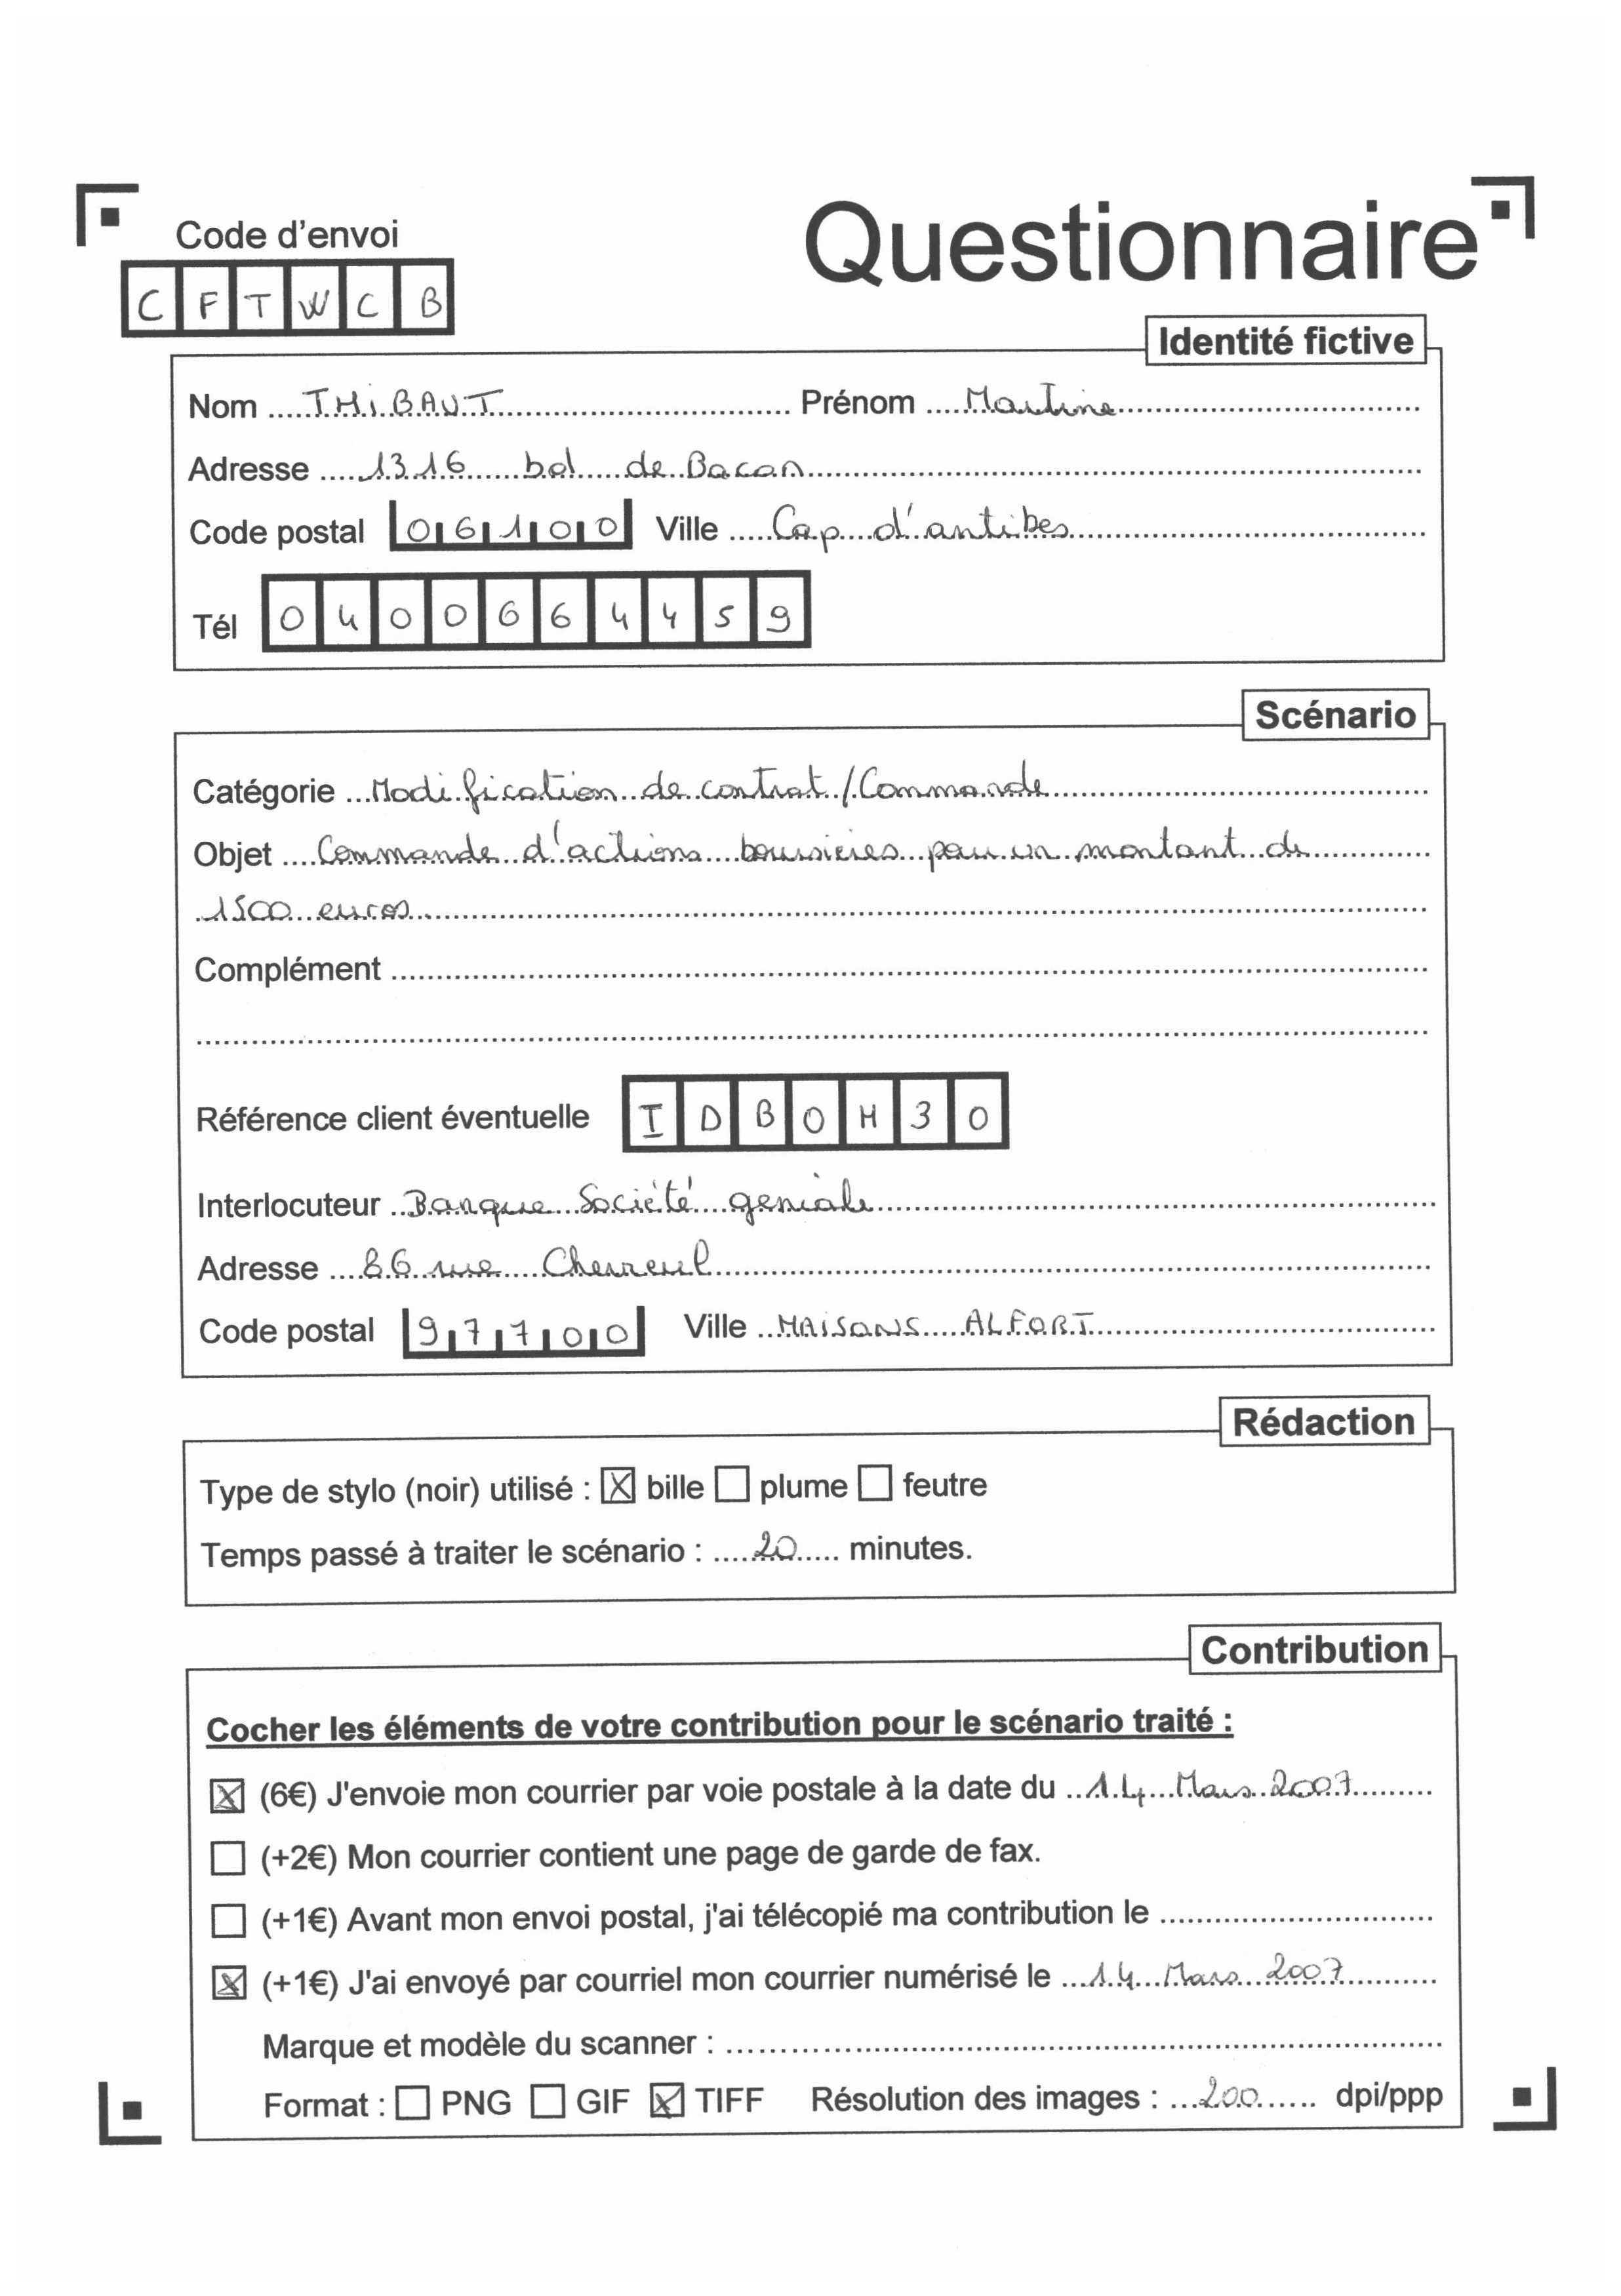 Code d'envoi
Questionnaire
C F T W C B
Identité fictive
Nom THIBAUT Prénom Martine
Adresse 1316 bd de Bacon
Code postal 06100 Ville Cap d'antibes
Tél 0400664459
Scénario
Catégorie Modification de contrat / Commande
Objet Commande d'actions boursières pour un montant de
1500 euros
Complément
Référence client éventuelle I D B O H 3 0
Interlocuteur Banque Société geniale
Adresse 86 rue Chevreul
Code postal 97700 Ville MAISONS ALFORT
Rédaction
Type de stylo (noir) utilisé : ☒ bille ☐ plume ☐ feutre
Temps passé à traiter le scénario : 20 minutes.
Contribution
Cocher les éléments de votre contribution pour le scénario traité :
☒ (6€) J'envoie mon courrier par voie postale à la date du 14 Mars 2007
☐ (+2€) Mon courrier contient une page de garde de fax.
☐ (+1€) Avant mon envoi postal, j'ai télécopié ma contribution le
☒ (+1€) J'ai envoyé par courriel mon courrier numérisé le 14 Mars 2007
Marque et modèle du scanner :
Format : ☐ PNG ☐ GIF ☒ TIFF Résolution des images : 200 dpi/ppp